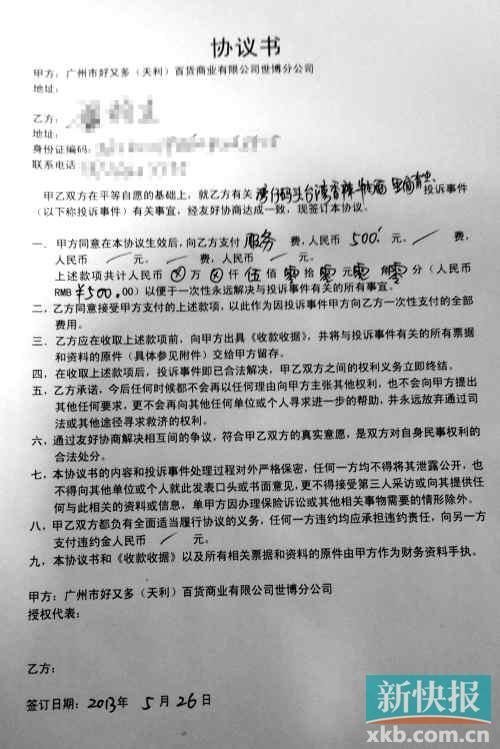 协议书
甲方：广州市好又多（天利）百货商业有限公司世博分公司
地址：
乙方：
地址：
身份证编码：
联系电话
甲乙双方在平等自愿的基础上，就乙方有关湾仔码头台湾香 投诉事件
（以下称投诉事件）有关事宜，经友好协商达成一致，现签订本协议。
一、甲方同意在本协议生效后，向乙方支付 服务 费，人民币 500 元、 / 费，
人民币 / 元。 / 费，人民币 / 元。
上述款项共计人民币 ⊗ 万 ⊗ 仟 伍 佰 零 拾 零 元 零 角 零 分（人民币
RMB ¥500.00）以便于一次性永远解决与投诉事件有关的所有事宜。
二，乙方同意接受甲方支付的上述款项，以此作为因投诉事件甲方向乙方一次性支付的全部
费用。
三、乙方应在收取上述款项前，向甲方出具《收款收据》，并将与投诉事件有关的所有票据
和资料的原件（具体参见附件）交给甲方留存。
四、在收取上述款项后，投诉事件即已合法解决，甲乙双方之间的权利义务立即终结。
五，乙方承诺，今后任何时候都不会再以任何理由向甲方主张其他权利，也不会向甲方提出
其他任何要求，更不会再向其他任何单位或个人寻求进一步的帮助，并永远放弃通过司
法或其他途径寻求救济的权利。
六、通过友好协商解决相互间的争议，符合甲乙双方的真实意愿，是双方对自身民事权利的
合法处分。
七、本协议书的内容和投诉事件处理过程对外严格保密，任何一方均不得将其泄露公开，也
不得向其他单位或个人就此发表口头或书面意见，更不得接受第三人采访或向其提供任
何与此相关的资料或信息，单甲方因办理保险诉讼或其他相关事物需要的情形除外。
八，甲乙双方都负有全面适当履行协议的义务，任何一方违约均应承担违约责任，向另一方
支付违约金人民币 / 元。
九，本协议书和《收款收据》以及所有相关票据和资料的原件由甲方作为财务资料手执。
甲方：广州市好又多（天利）百货商业有限公司世博分公司
授权代表：
乙方：
签订日期：2013年 5 月 26 日
新快报
xkb.com.cn